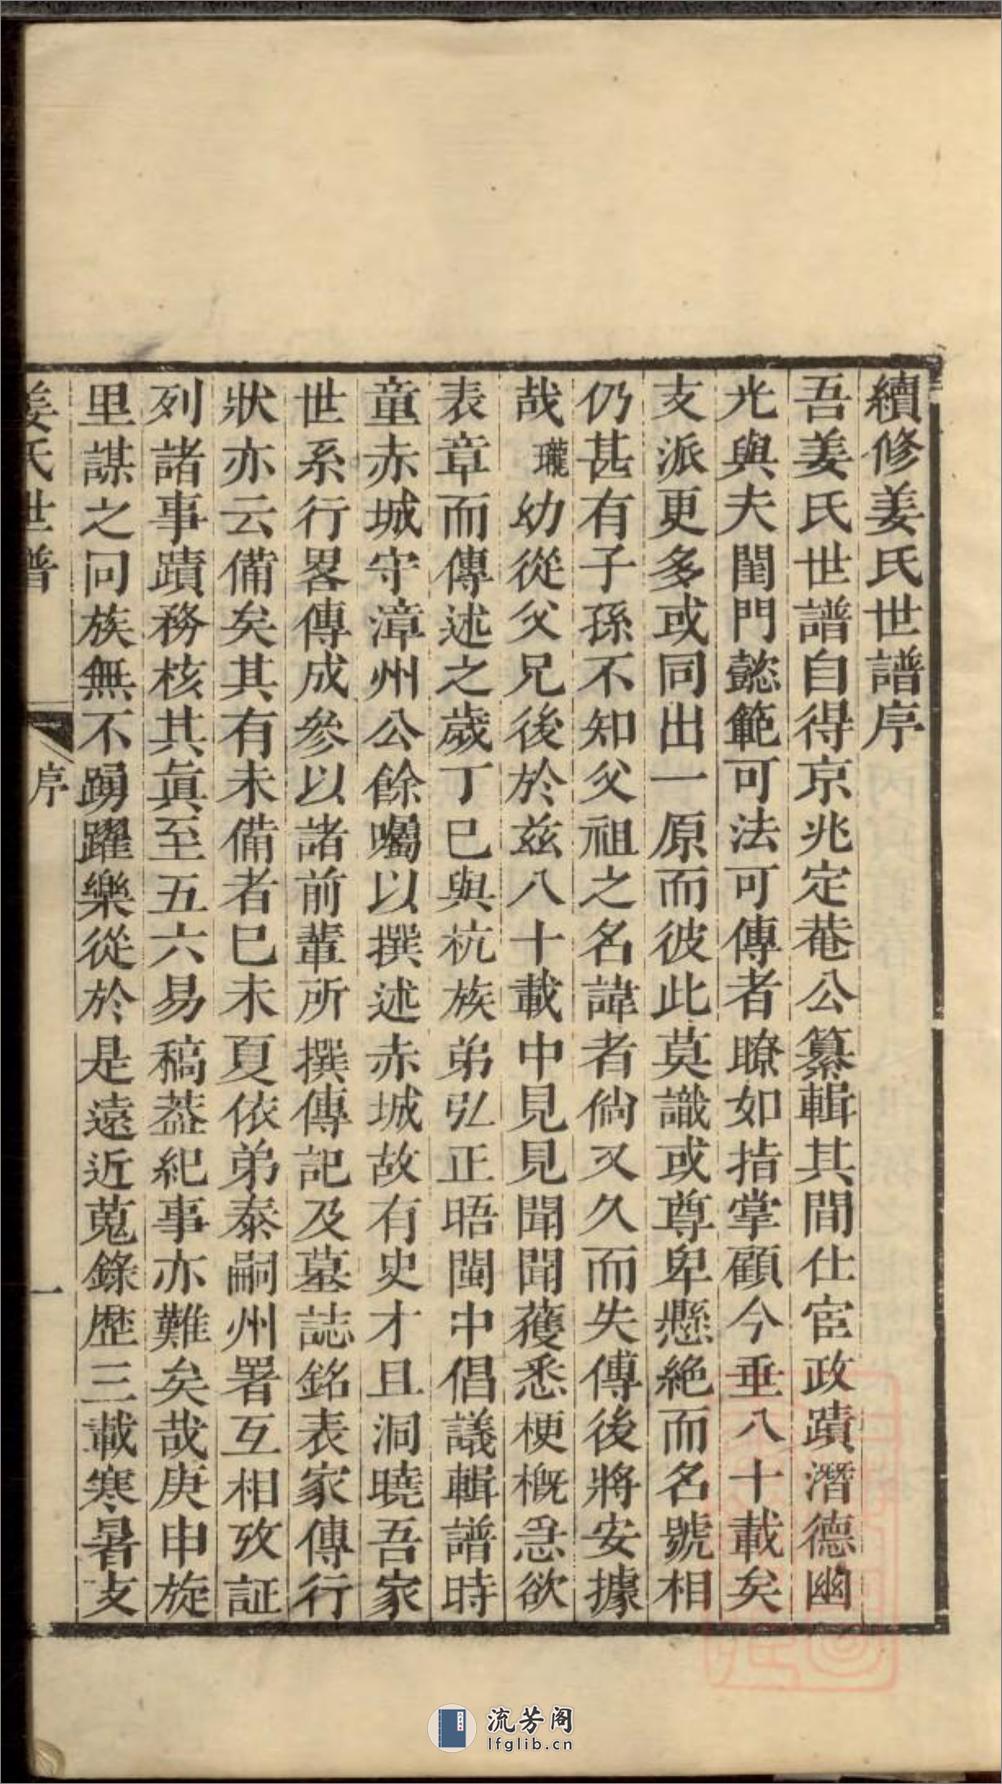 續修姜氏世譜序
吾姜氏世譜自得京兆定菴公纂輯其間仕宦政蹟潛德幽
光與夫閨門懿範可法可傳者瞭如指掌顧今垂八十載矣
支派更多或同出一原而彼此莫識或尊卑懸絶而名號相
仍甚有子孫不知父祖之名諱者倘又久而失傳後將安據
哉瓏幼從父兄後於兹八十載中見見聞聞蒦悉梗槪急欲
表章而傳述之歲丁巳與杭族弟弘正晤閩中倡議輯譜時
童赤城守漳州公餘囑以撰述赤城故有史才且洞曉吾家
世系行畧傳成參以諸前輩所撰傳記及墓誌銘表家傳行
狀亦云備矣其有未備者巳未夏依弟泰嗣州署互相攷証
列諸事蹟務核其眞至五六易稿葢紀事亦難矣哉庚申旋
里謀之同族無不踴躍樂從於是遠近蒐錄歴三載寒暑支
姜氏世譜
序
一
流芳阁
lfglib.cn